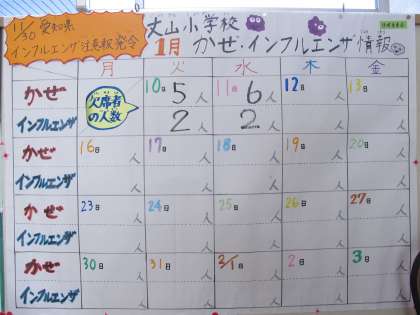 11/30 愛知県
インフルエンザ注意報発令
大山小学校
1月 かぜ・インフルエンザ情報
月 火 水 木 金
かぜ 欠席者の人数 10日 5人 11日 6人 12日 人 13日 人
インフルエンザ 2人 2人 人 人
かぜ 16日 人 17日 人 18日 人 19日 人 20日 人
インフルエンザ 人 人 人 人 人
かぜ 23日 人 24日 人 25日 人 26日 人 27日 人
インフルエンザ 人 人 人 人 人
かぜ 30日 人 31日 人 2/1日 人 2日 人 3日 人
インフルエンザ 人 人 人 人 人